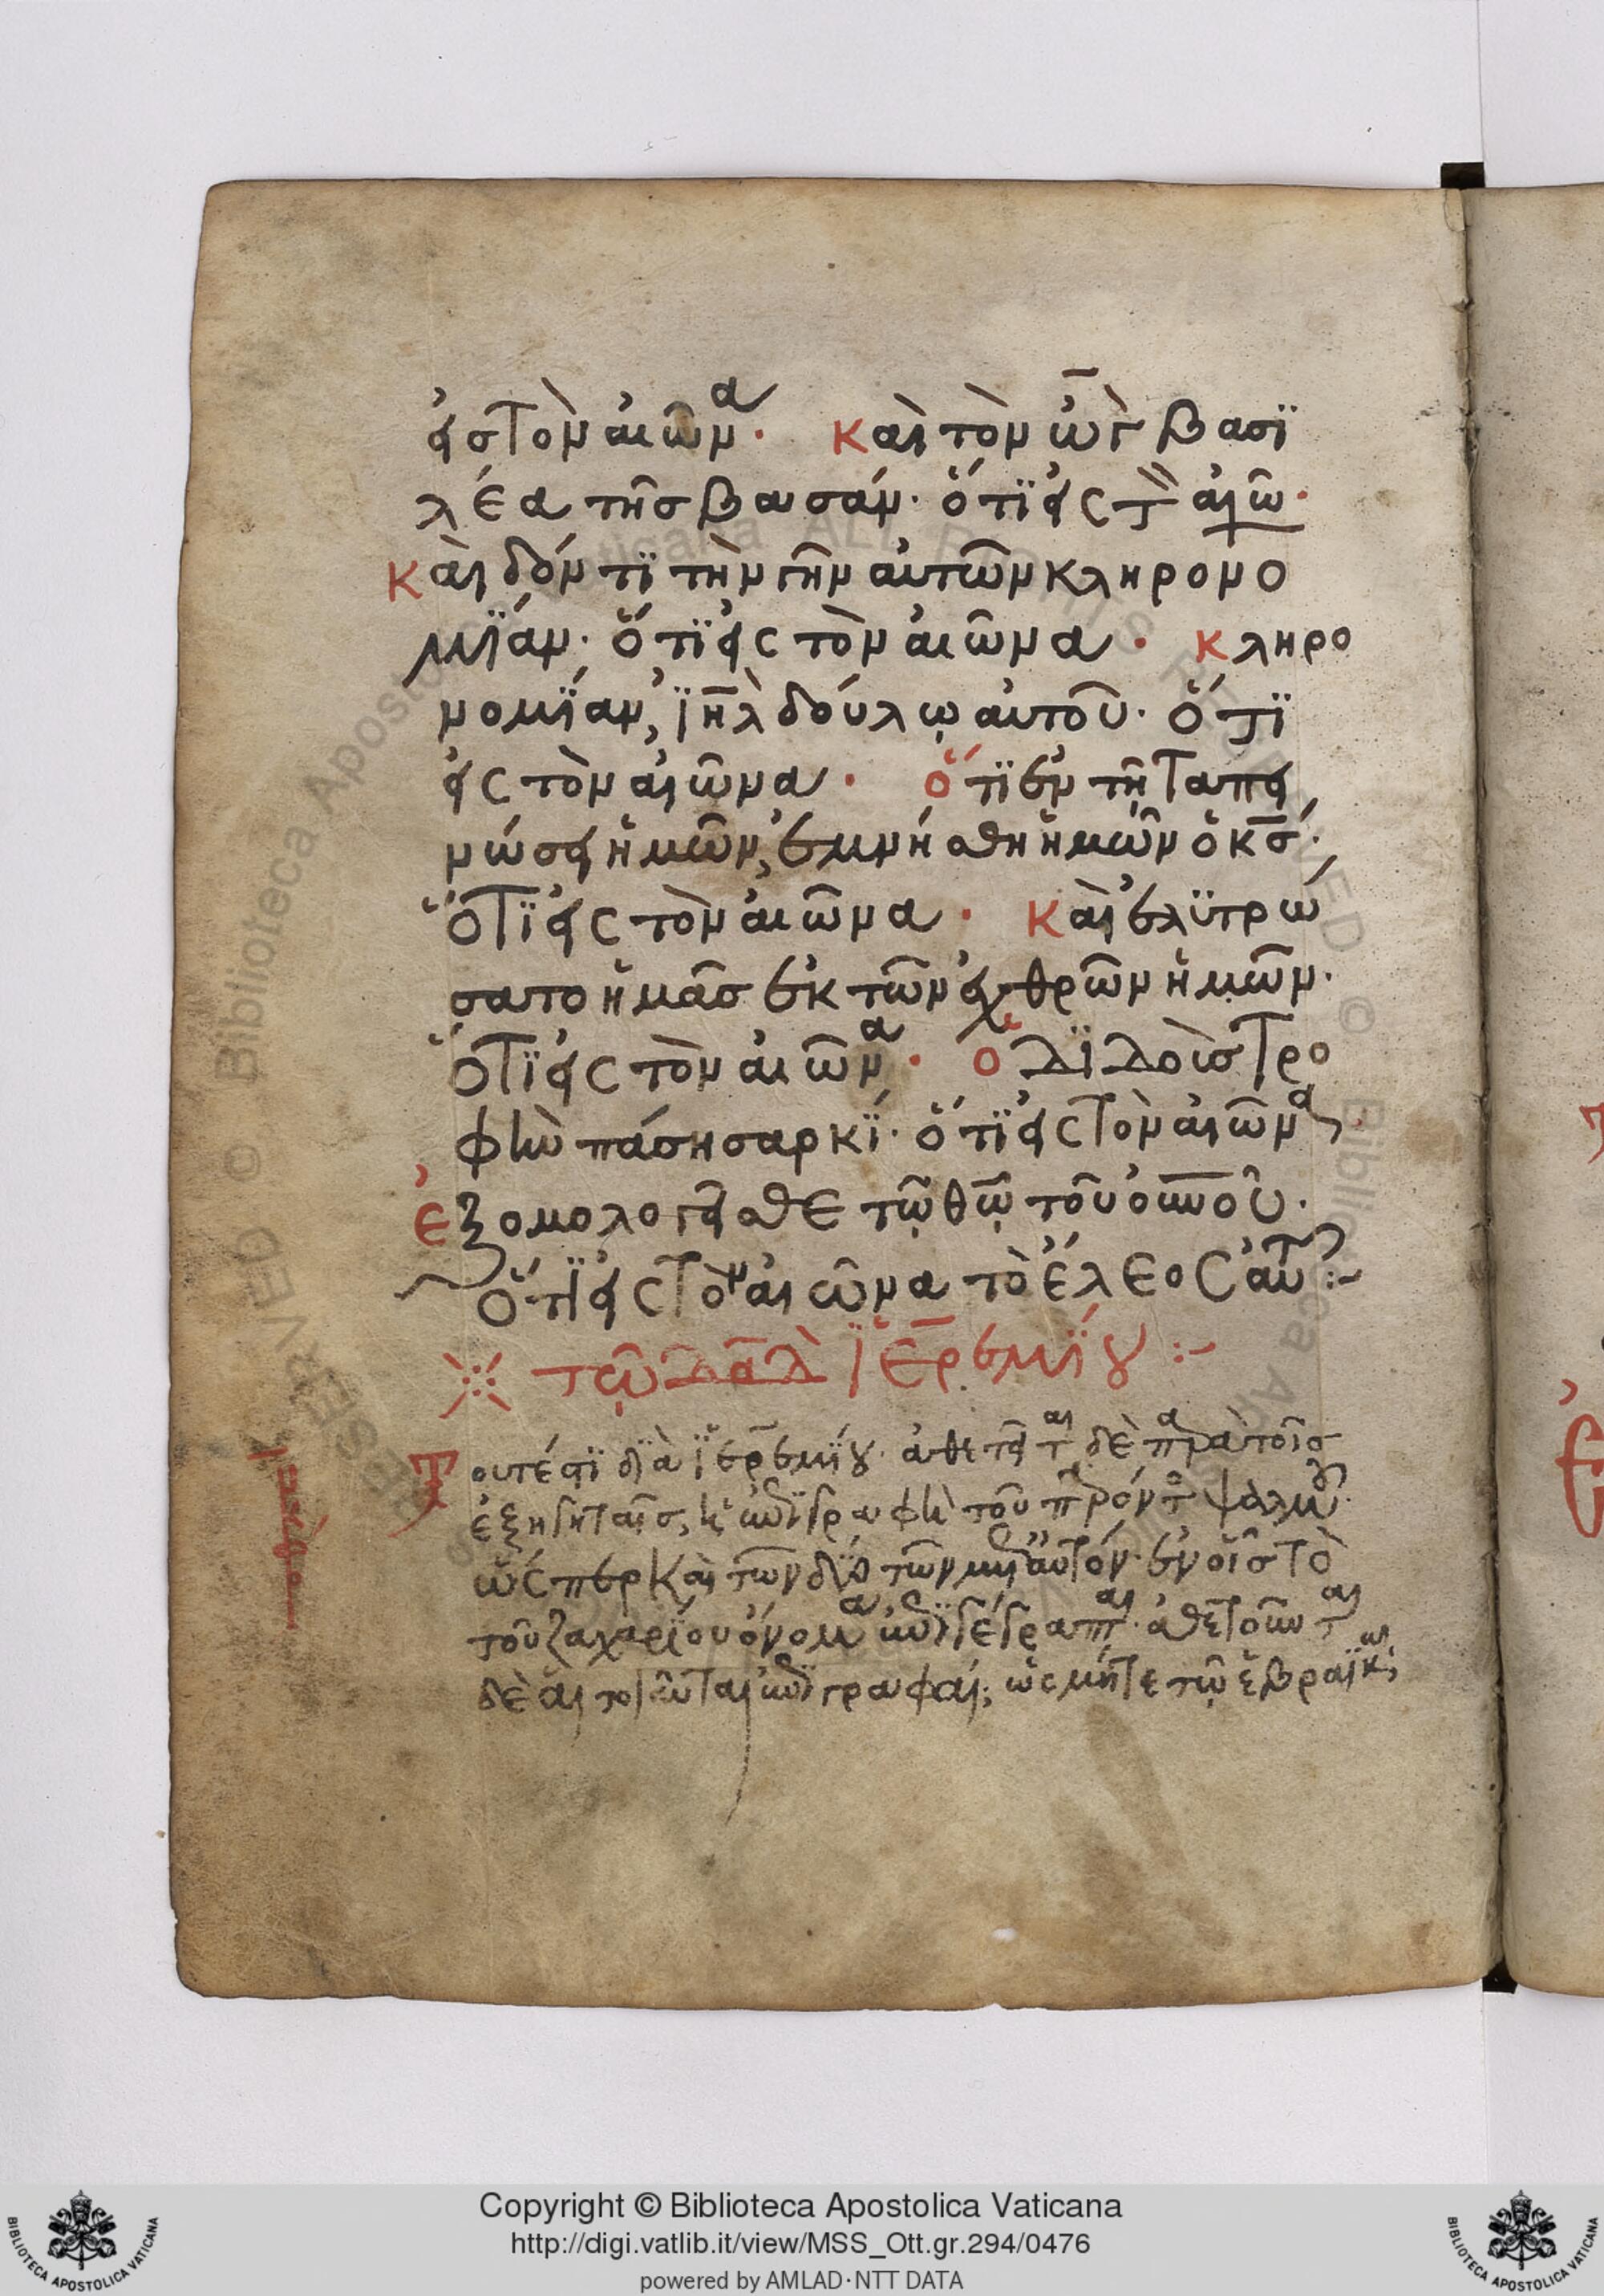 εἰς τὸν αἰῶνα. καὶ τὸν ὢγ βασϊ
λέα τῆς βασάν. ὅτϊ εἰς τ αἰῶ.
καὶ δόντϊ τὴν γῆν αὐτῶν κληρονο
μϊάν. ὅτϊ εἰς τὸν αἰῶνα. κληρο
νομϊαν, ϊηλ δούλω αὐτοῦ. ὅτϊ
εἰς τὸν αἰῶνα. ὅτϊ ἐν τῆ ταπει
νώσει ἡμῶν, ἐμνήσθη ἡμῶν ὁ κς.
ὅτϊ εἰς τὸν αἰῶνα. καὶ ἐλϋτρώ
σατο ἡμᾶς ἐκ τῶν ἐχθρῶν ἡμῶν.
ὅτϊ εἰς τὸν αἰῶνα. ὁ δϊδοὺς τρο
φὴν πάση σαρκϊ. ὅτϊ εἰς τὸν αἰῶνα.
ἐξομολογεῖσθε τῶ θῶ τοῦ οὐνοῦ.
ὅτϊ εἰς τὸν αἰῶνα τὸ ἔλεος αὐτ :~
τῶ δαδ ϊερεμϊου :~
τουτέστϊ δϊὰ ϊερεμϊου. ἀθετεῖται δὲ παρὰ τοῖς
ἐξηγηταῖς, κ ἐπϊγραφὴ τοῦ παρόντο ψαλμοῦ.
ὥσπερ καὶ τῶν δύο τῶν μετ αὐτόν. ἐν οἷς τὸ
τοῦ ζαχαρϊου ὄνομα ἐπϊγέγραπται. ἀθετοῦνται
δὲ αἱ τοιαῦται ἐπϊγραφαί, ὡς μήτε τῶ ἑβραϊκῶ
Copyright © Biblioteca Apostolica Vaticana
http://digi.vatlib.it/view/MSS_Ott.gr.294/0476
powered by AMLAD·NTT DATA
BIBLIOTECA APOSTOLICA VATICANA
BIBLIOTECA APOSTOLICA VATICANA